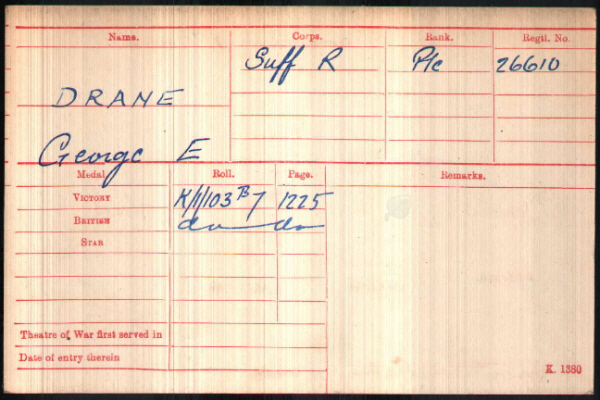 Name. Corps. Rank. Regtl. No.
Suff R Pte 26610
DRANE
George E
Medal Roll. Page. Remarks.
VICTORY K/1/103 B7 1225
BRITISH do do
STAR
Theatre of War first served in
Date of entry therein
K. 1380